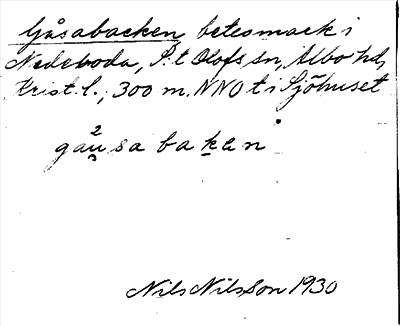 Gåsabacken betesmark i
Nedeboda, S:t Olofs sn, Albo hd,
Krist. l., 300 m. NNO t i Sjöhuset
ga2u̯sa bakan
Nils Nilsson 1930